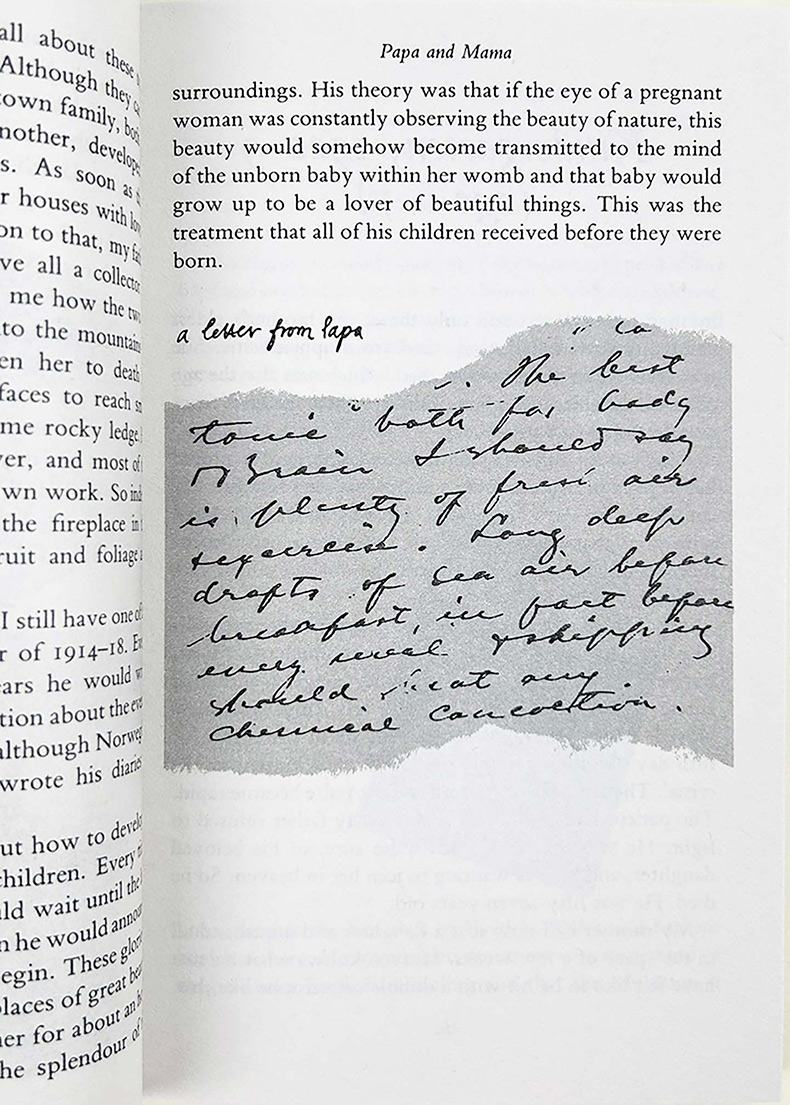 all about these
Although they
town family, both
nother, develope
s. As soon as
r houses with
on to that, my
ve all a collector
me how the two
to the mountain
en her to death
faces to reach
me rocky ledge
er, and most of
wn work. So
the fireplace in
ruit and foliage
I still have one of
r of 1914–18.
ars he would
tion about the
although Norweg
wrote his diaries
ut how to develo
children. Every
ld wait until the
n he would
egin. These
places of great
her for about an
he splendour of
Papa and Mama
surroundings. His theory was that if the eye of a pregnant
woman was constantly observing the beauty of nature, this
beauty would somehow become transmitted to the mind
of the unborn baby within her womb and that baby would
grow up to be a lover of beautiful things. This was the
treatment that all of his children received before they were
born.
a letter from Papa
The best
tonic" both for body
& Brain I should say
is plenty of fresh air
& exercise. Long deep
drafts of sea air before
breakfast, in fact before
every meal & skipping
should beat any
chemical concoction.